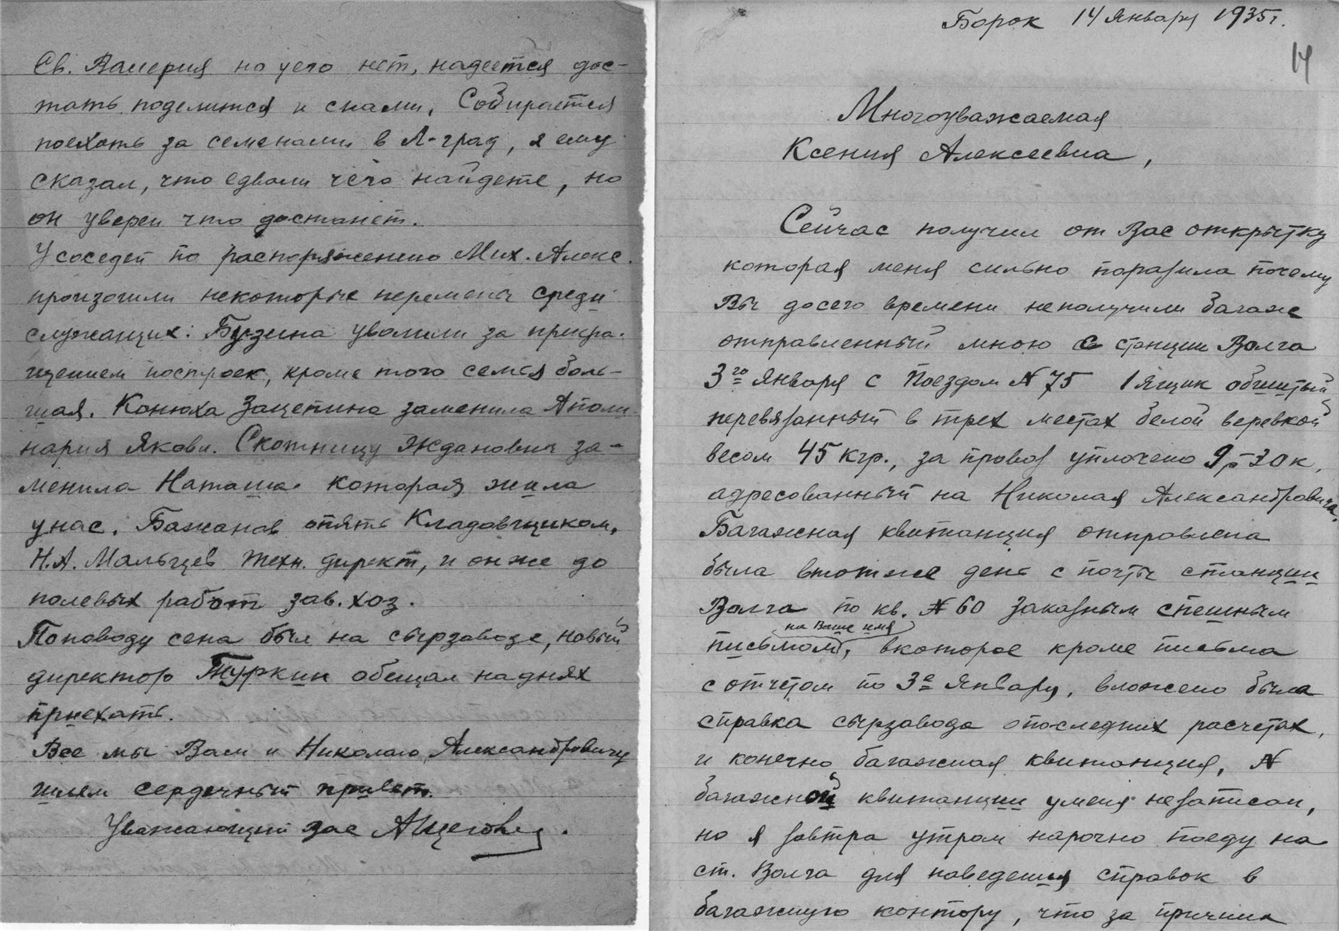 Св. Валерия но у его нет, надеется дос-
тать поделится и снами. Собирается
поехать за семенами в Л-град, я ему
сказал, что едвали чего найдете, но
он уверен что достанет.
У соседей по распоряжению Мих. Алекс.
произошли некоторые перемены среди
служащих: Бузина уволили за прекра-
щением построек, кроме того семья боль-
шая. Конюха Зацепина заменила Аполи-
нария Яковл. Скотницу Жданович за-
менила Наташа которая жила
унас. Бажанов опять Кладовщиком.
Н.А. Мальцев техн. директ, и онже до
полевых работ зав. хоз.
Поповоду сена был на сырзаводе, новый
директор Туркин обещал наднях
приехать.
Все мы Вам и Николаю Александровичу
шлем сердечный привет.
Уважающий Вас АЩеголев.
Борок 14 Января 1935г.
14
Многоуважаемая
Ксения Алексеевна,
Сейчас получил от Вас открытку
которая меня сильно поразила почему
Вы досего времени неполучили багаж
отправленный мною с станции Волга
3го Января с Поездом №75 1 Ящик обшитый
перевязанный в трех местах белой веревкой
весом 45 кгр., за провоз уплочено 9р-30к,
адресованный на Николая Александровича.
Багажная квитанция отправлена
была втотже день с почты станции
Волга по кв. №60 заказным спешным
на Ваше имя
письмом, вкоторое кроме письма
с отчетом по 3е Января, вложено была
справка сырзавода опоследних расчетах,
и конечно багажная квитанция, №
багажной квитанции уменя незаписан,
но я завтра утром нарочно поеду на
ст. Волга для наведения справок в
багажную контору, что за причина